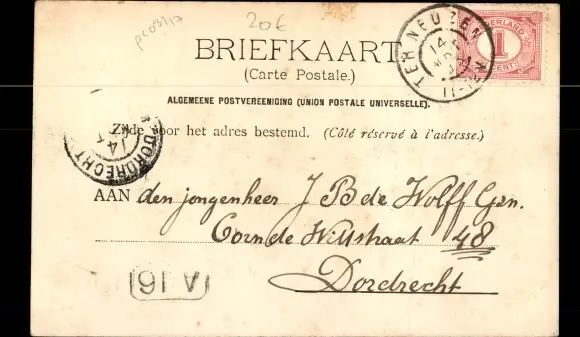 pc03/17
20€
BRIEFKAART
(Carte Postale.)
ALGEMEENE POSTVEREENIGING (UNION POSTALE UNIVERSELLE).
Zijde voor het adres bestemd. (Côté réservé à l'adresse.)
TER NEUZEN
14
11-12
NEDERLAND
1
CENT
DORDRECHT
14
AAN den jongenheer J B de Wolff Gzn.
Corn de Wittstraat 48
Dordrecht
A 16